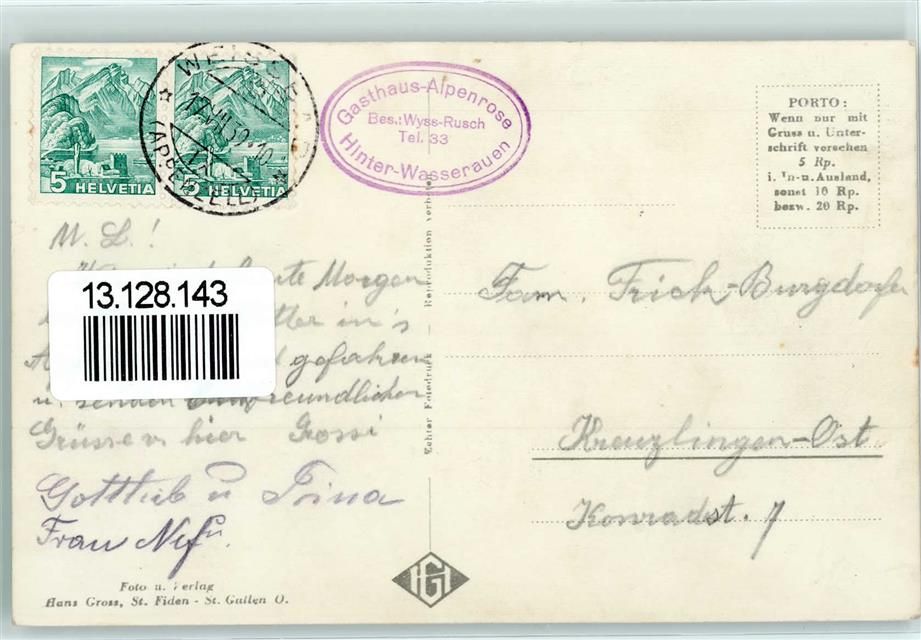 5 HELVETIA
5 HELVETIA
WEISSBAD
(APPENZELL)
Gasthaus-Alpenrose
Bes.: Wyss-Rusch
Tel. 33
Hinter-Wasserauen
PORTO:
Wenn nur mit
Gruss u. Unter-
schrift versehen
5 Rp.
i. In- u. Ausland,
sonst 10 Rp.
bezw. 20 Rp.
M. L.!
heute Morgen
in's
gefahren
u. senden Euch freundlichen
Grüsse v. hier Grossi
Gottlieb u Trina
Frau Nef
Foto u. Verlag
Hans Gross, St. Fiden - St. Gallen O.
13.128.143
Echter Fotodruck - Reproduktion verboten
HG
Fam. Frick-Burgdorfer
Kreuzlingen-Ost
Konradst. 7